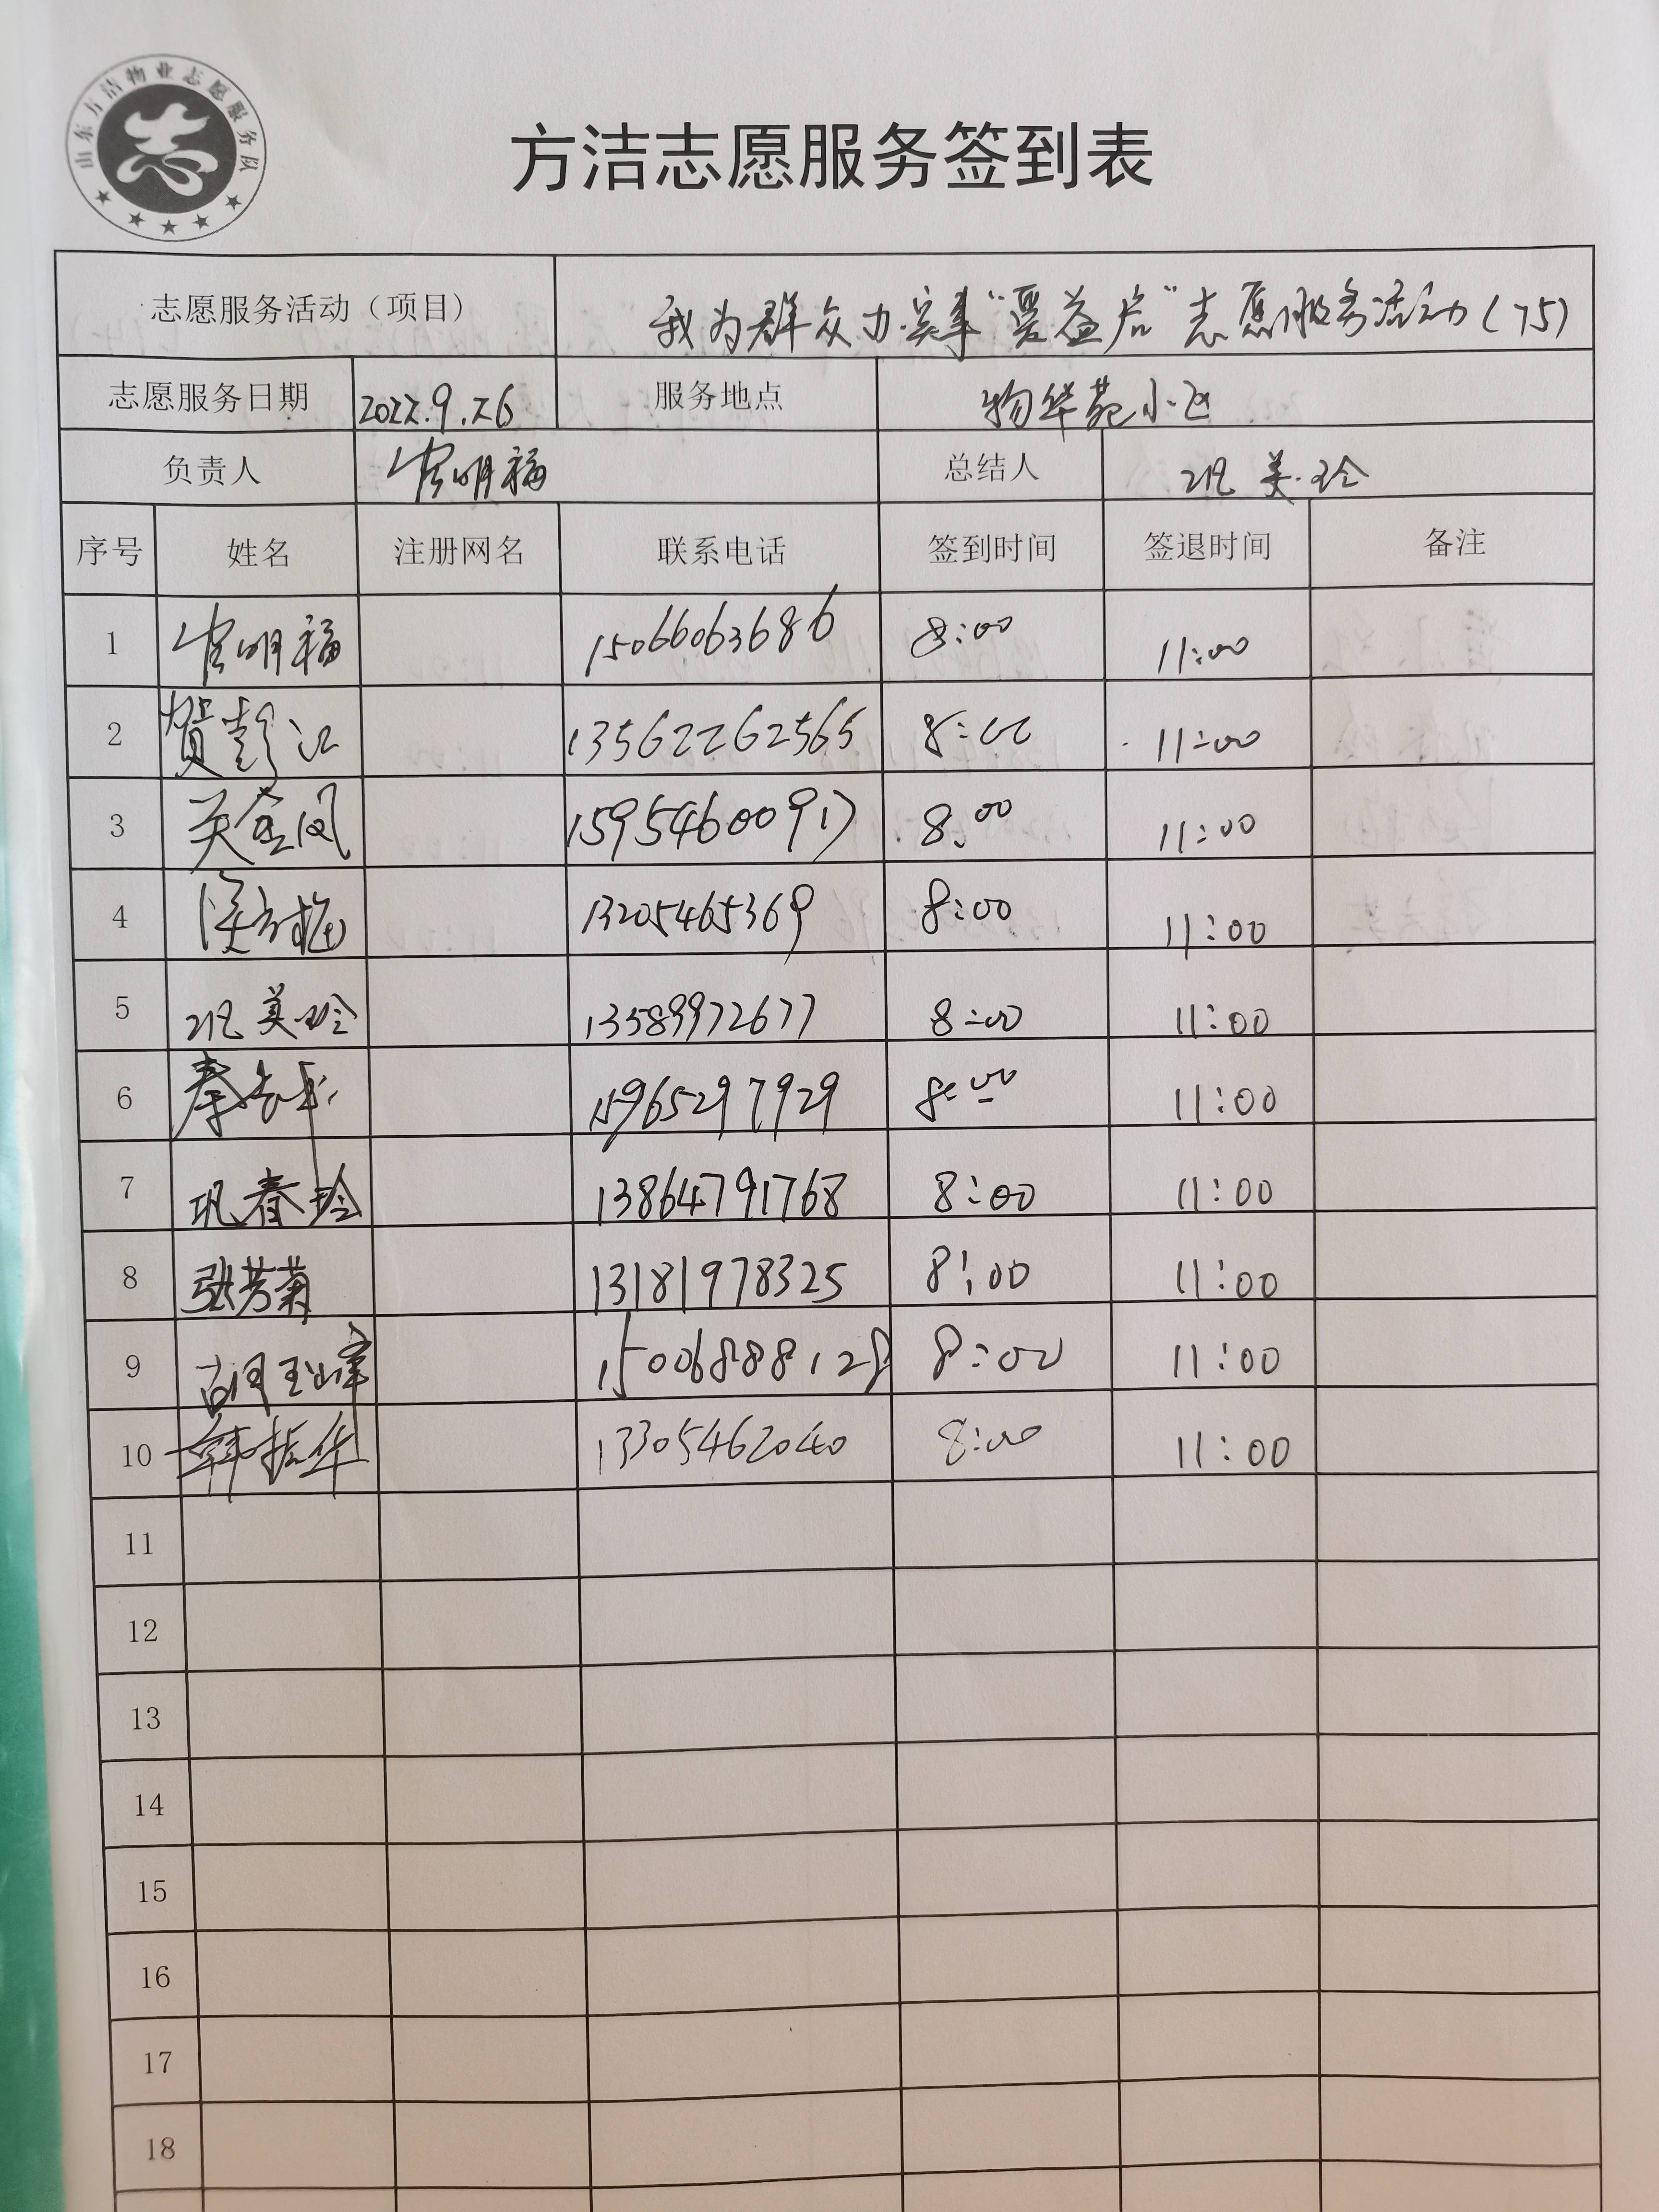 山东方洁物业志愿服务队
方洁志愿服务签到表
志愿服务活动（项目） 我为群众办实事“爱益启”志愿服务活动(75)
志愿服务日期 2022.9.26 服务地点 物华苑小区
负责人 明福 总结人 巩美玲
序号 姓名 注册网名 联系电话 签到时间 签退时间 备注
1 明福 15066063686 8:00 11:00
2 贺彭江 13562262565 8:00 11:00
3 关金凤 15954600917 8:00 11:00
4 13205465369 8:00 11:00
5 巩美玲 13589972677 8:00 11:00
6 秦 15965297929 8:00 11:00
7 巩春玲 13864791768 8:00 11:00
8 张芳菊 13181978325 8:00 11:00
9 胡玉峰 15006888128 8:00 11:00
10 韩振华 13305462040 8:00 11:00
11
12
13
14
15
16
17
18